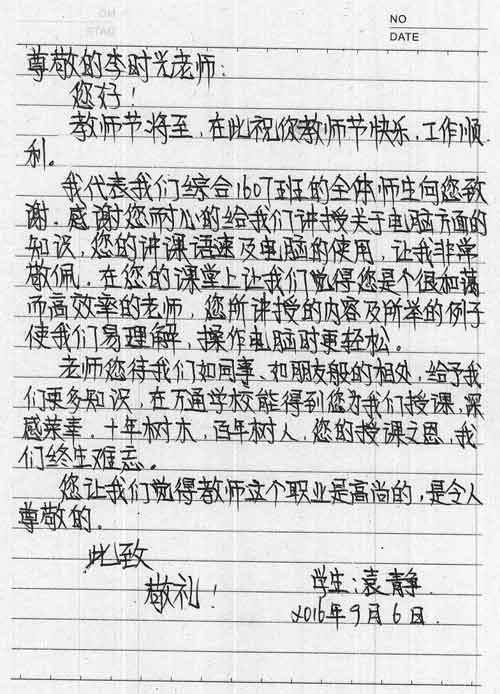 NO
DATE
尊敬的李时光老师:
您好!
教师节将至,在此祝您教师节快乐,工作顺
利。
我代表我们综合1607班的全体师生向您致
谢。感谢您耐心的给我们讲授关于电脑方面的
知识,您的讲课语速及电脑的使用,让我非常
敬佩。在您的课堂上让我们觉得您是个很和蔼
而高效率的老师,您所讲授的内容及所举的例子
使我们易理解,操作电脑时更轻松。
老师您待我们如同事、如朋友般的相处,给予我
们更多知识,在万通学校能得到您为我们授课,深
感荣幸。十年树木,百年树人,您的授课之恩,我
们终生难忘。
您让我们觉得教师这个职业是高尚的,是令人
尊敬的。
此致
敬礼!
学生:袁静
2016年9月6日.